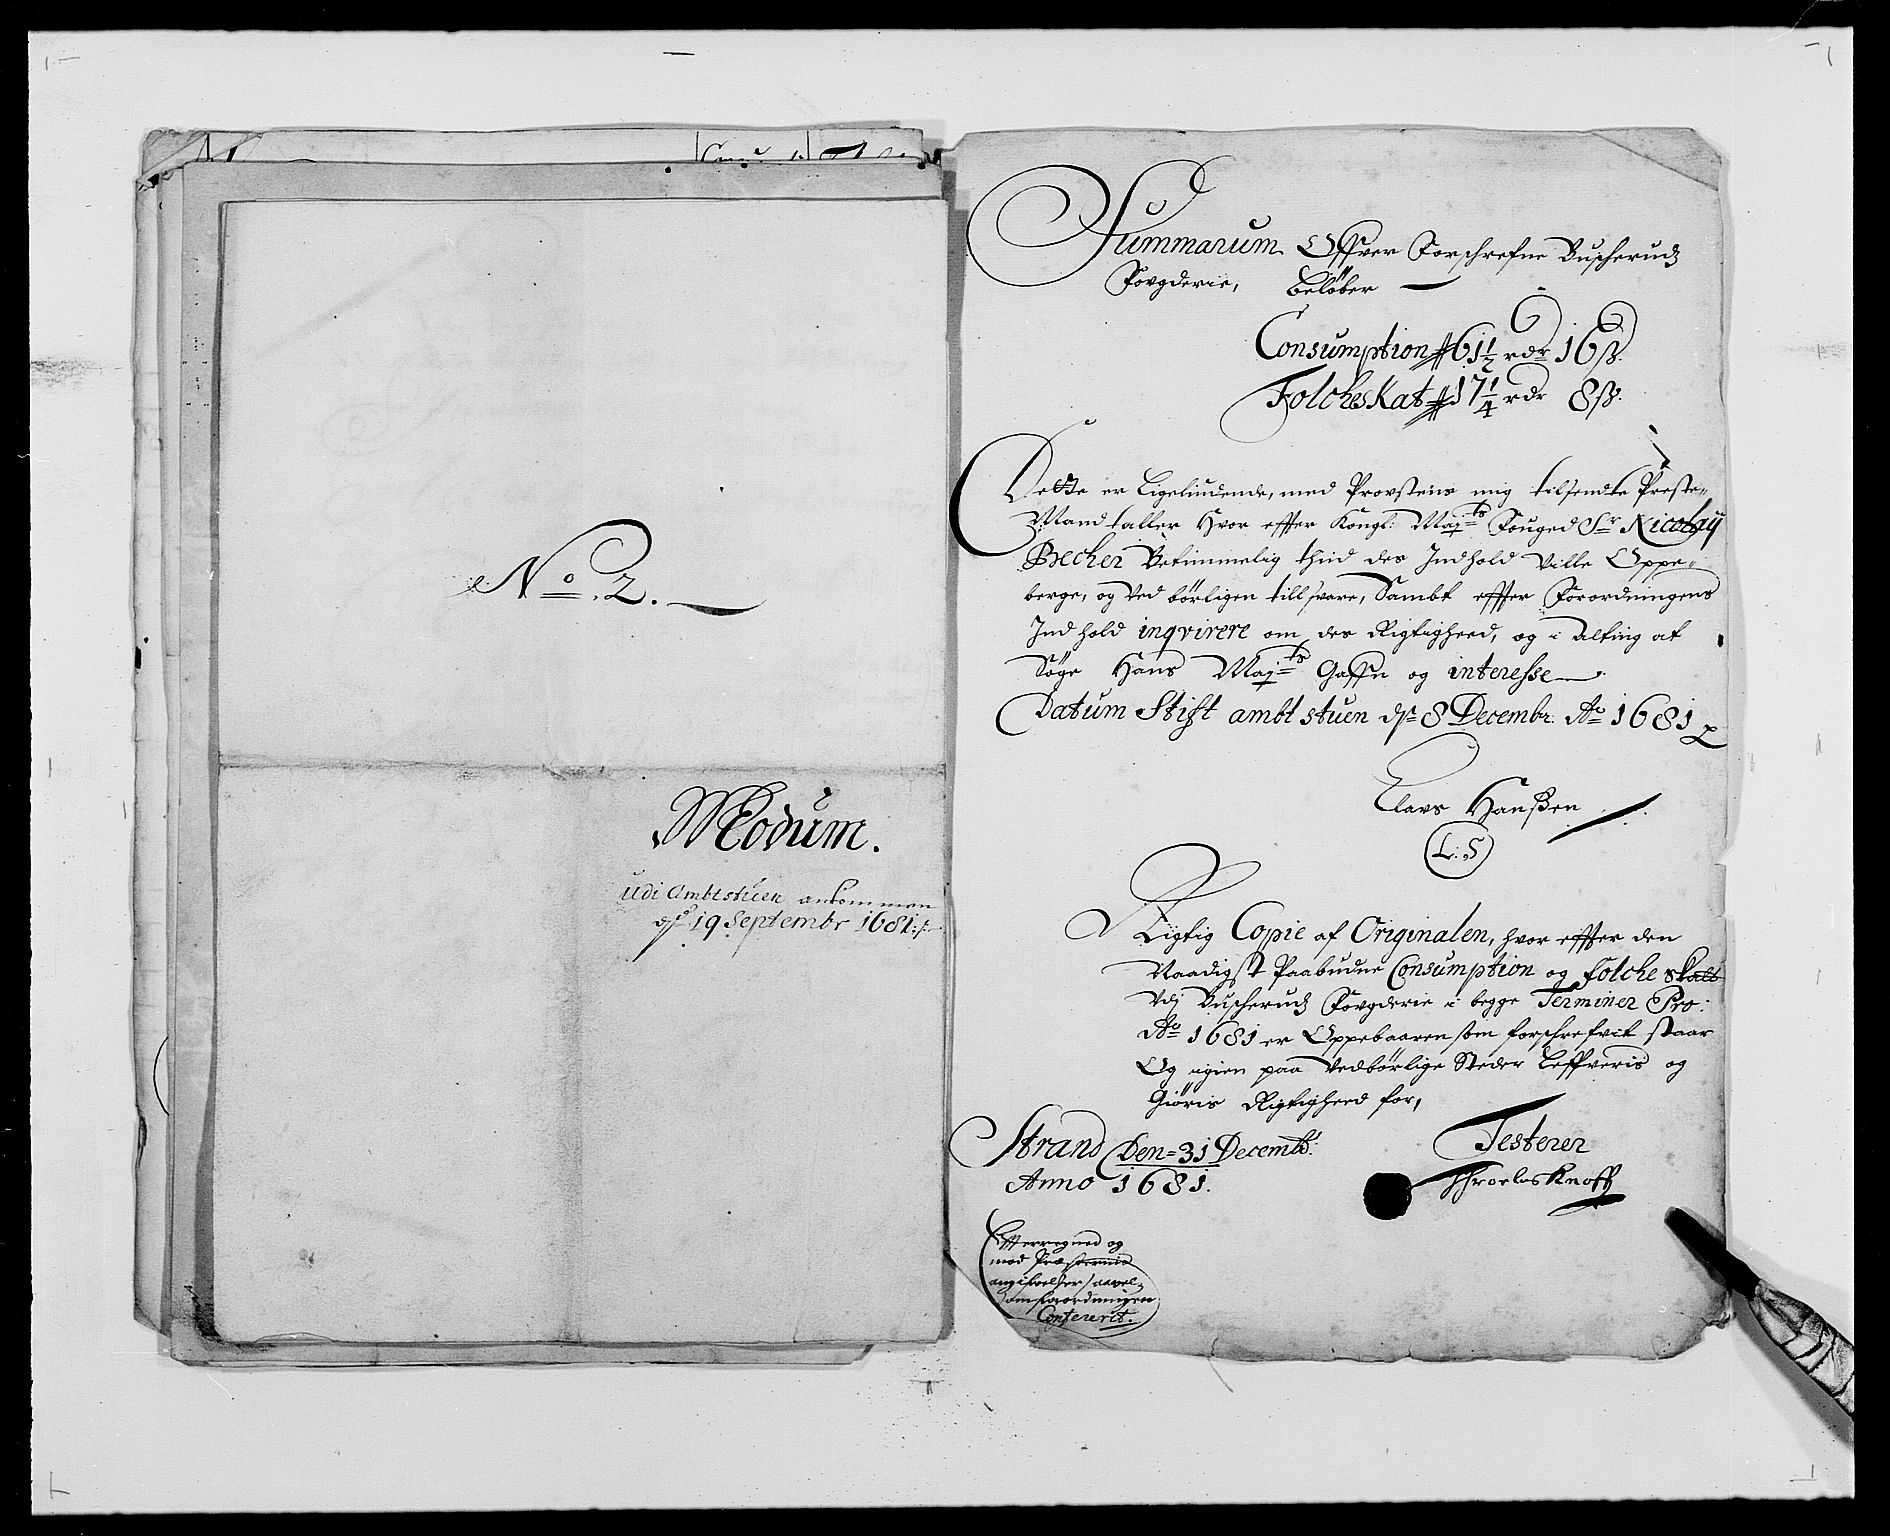 No. 2.
Modum.
Udi Ambtstuen ankommen
dn 19 Septembr 1681.
Summarum Offver Forschrefne Buscheruds
Fougderie, beløber
Consumption # 61 1/2 rdr 16 ß.
Folcheskat # 17 1/4 rdr 8 ß.
Dette er Ligeliudende, med Provstens mig tilsendte Preste-
Mandtaller Hvor effter Kongl: Maj:ts Fouged Sr Nicolaij
Becher Betimmelig thid des Indhold ville Oppe-
berge, og Ved børligen tillsvare, Sambt effter Forordningens
Indhold inqvirere om des Rigtighed, og i alting at
Søge Hans Maj:ts Gaffn og interesse
Datum Stift ambt stuen dn 8 Decembr. Ao 1681
Claus Hanßen
L: S
Rigtig Copie af Originalen, hvor effter den
Naadigst Paabudne Consumption og Folche skatt
Udj Buscheruds Fougderie i begge Terminer Pro:
Ao 1681 er Oppebaaren som forschrefvit staar
Og igien paa Vedbørlige Steder Leffveris og
Giøris Rigtighed for,
Strand Den 31 Decembr:
Anno 1681.
Testerer
Throels Knoff
Effterregned og
med Præsternis
angifvelser saavel-
som forordningen
Confererit.